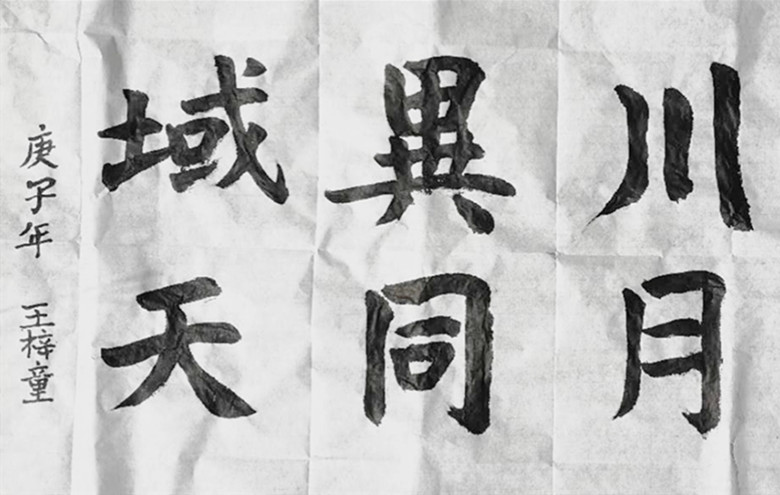 川異域
月同天
庚子年 王梓童